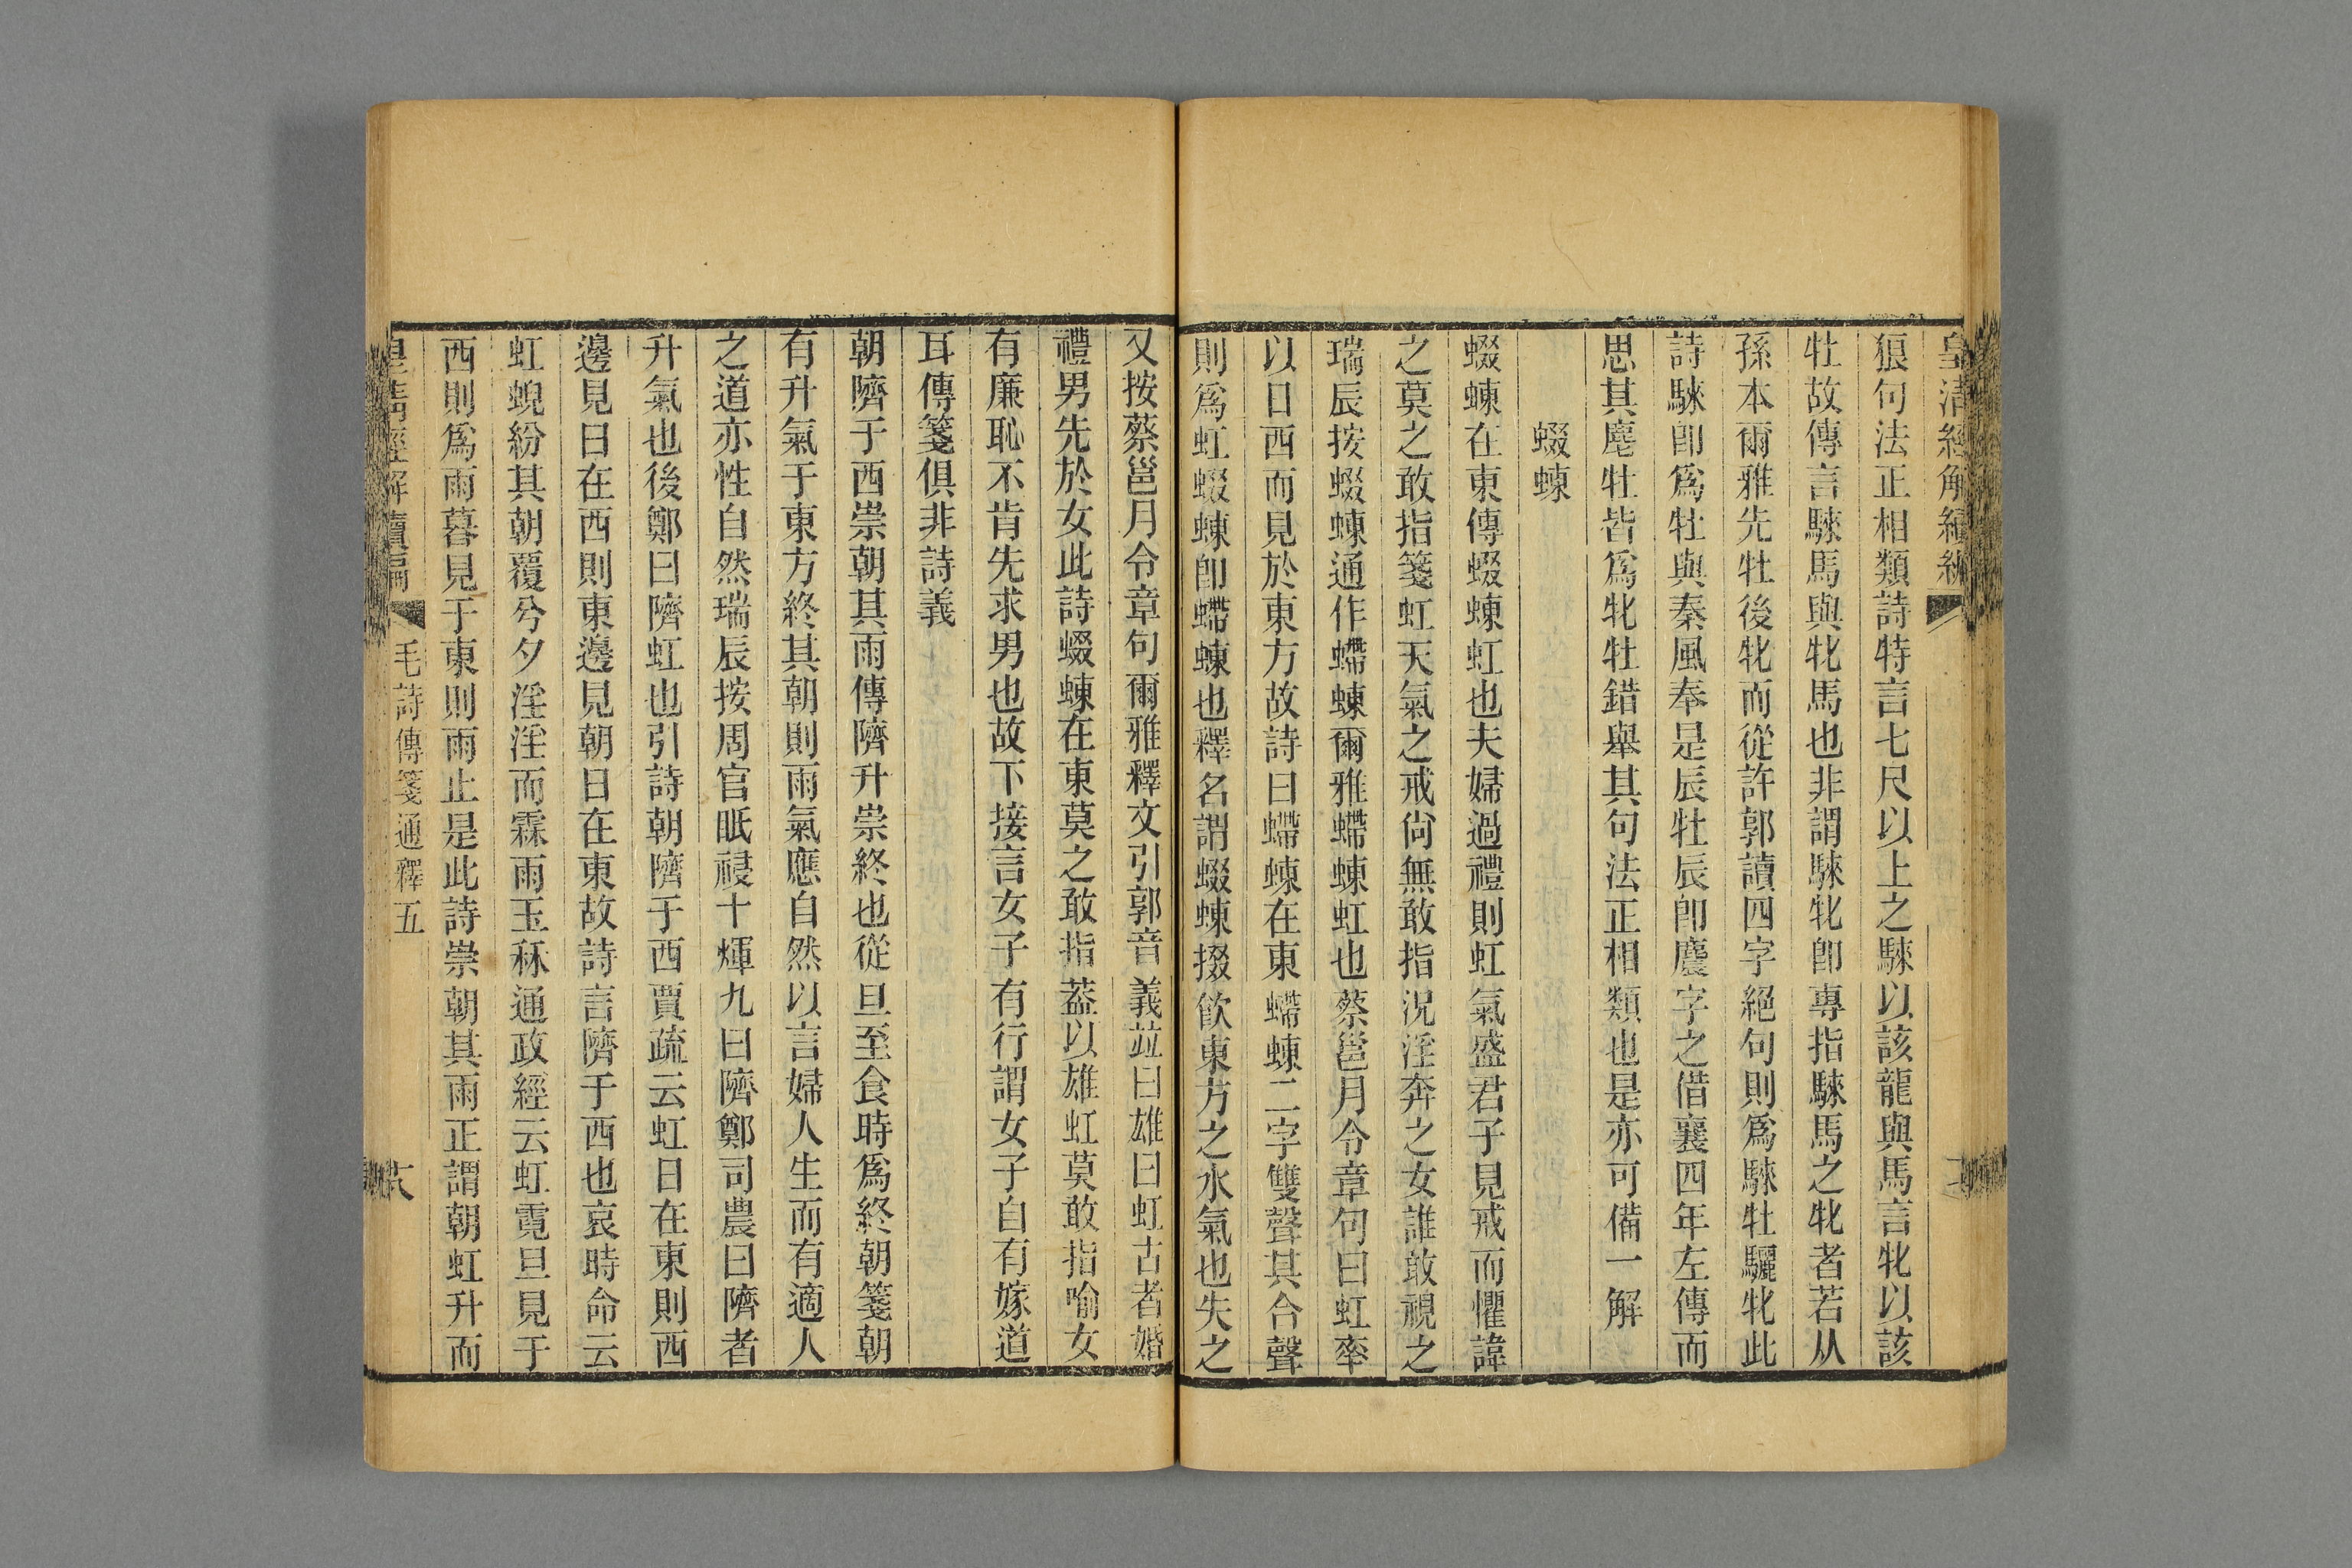 皇清經解續編
狼句法正相類詩特言七尺以上之騋以該龍與馬言牝以該
牡故傳言騋馬與牝馬也非謂騋牝卽專指騋馬之牝者若从
孫本爾雅先牡後牝而從許郭讀四字絕句則爲騋牡驪牝此
詩騋卽爲牡與秦風奉是辰牡辰卽麎字之借襄四年左傳而
思其麀牡皆爲牝牡錯舉其句法正相類也是亦可備一解
蝃蝀
蝃蝀在東傳蝃蝀虹也夫婦過禮則虹氣盛君子見戒而懼諱
之莫之敢指箋虹天氣之戒尙無敢指況淫奔之女誰敢視之
瑞辰按蝃蝀通作螮蝀爾雅螮蝀虹也蔡邕月令章句曰虹率
以日西而見於東方故詩曰螮蝀在東螮蝀二字雙聲其合聲
則爲虹蝃蝀卽螮蝀也釋名謂蝃蝀掇飮東方之水氣也失之
又按蔡邕月令章句爾雅釋文引郭音義竝曰雄曰虹古者婚
禮男先於女此詩蝃蝀在東莫之敢指葢以雄虹莫敢指喻女
有廉恥不肯先求男也故下接言女子有行謂女子自有嫁道
耳傳箋俱非詩義
朝隮于西崇朝其雨傳隮升崇終也從旦至食時爲終朝箋朝
有升氣于東方終其朝則雨氣應自然以言婦人生而有適人
之道亦性自然瑞辰按周官眡祲十煇九曰隮鄭司農曰隮者
升氣也後鄭曰隮虹也引詩朝隮于西賈疏云虹日在東則西
邊見日在西則東邊見朝日在東故詩言隮于西也哀時命云
虹蜺紛其朝覆兮夕淫淫而霖雨玉秝通政經云虹霓旦見于
西則爲雨暮見于東則雨止是此詩崇朝其雨正謂朝虹升而
皇清經解續編 毛詩傳箋通釋五